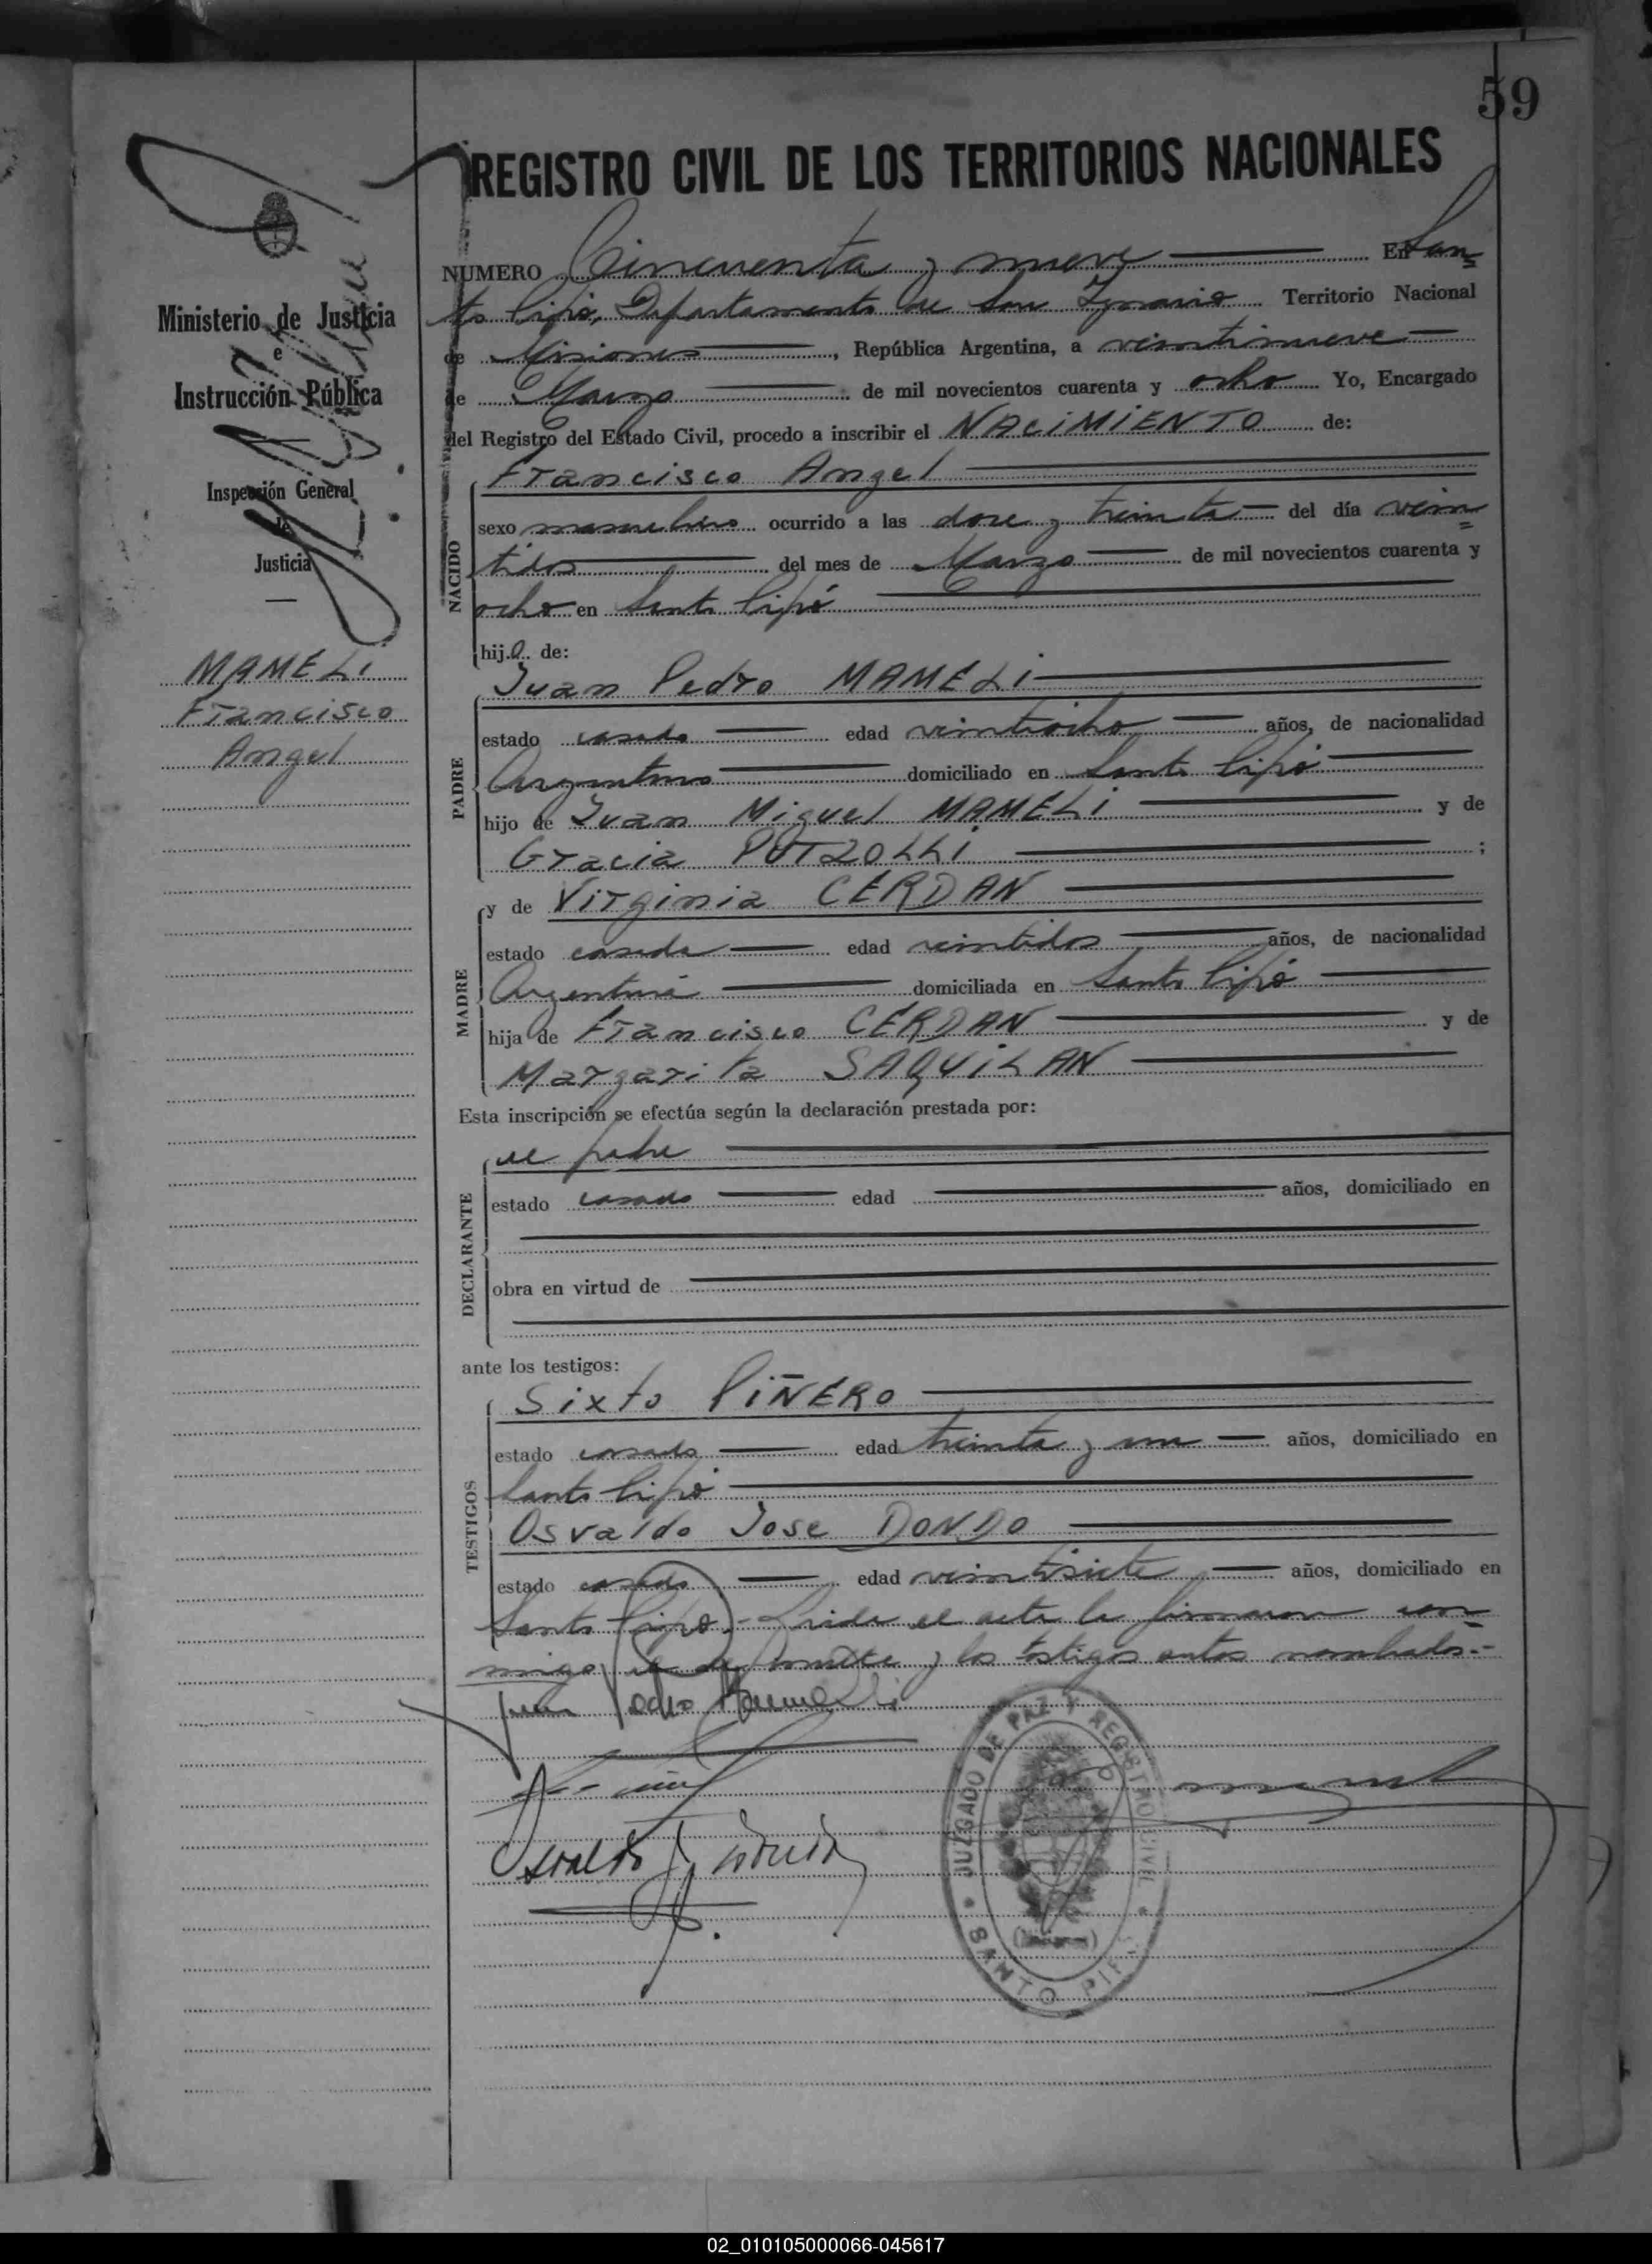 59
REGISTRO CIVIL DE LOS TERRITORIOS NACIONALES
Ministerio de Justicia
e
Instrucción Pública
Inspección General
de
Justicia
MAMELi
Francisco
Angel
NUMERO Cincuenta y nueve En San=
to Pipó, Departamento de San Ignacio Territorio Nacional
de Misiones, República Argentina, a veintinueve
de Marzo de mil novecientos cuarenta y ocho Yo, Encargado
del Registro del Estado Civil, procedo a inscribir el NACiMiENTO de:
NACIDO
Francisco Angel
sexo masculino ocurrido a las doce y treinta del día vein=
tidos del mes de Marzo de mil novecientos cuarenta y
ocho en Santo Pipó
hijo de:
PADRE
Juan Pedro MAMELi
estado casado edad veintiocho años, de nacionalidad
Argentino domiciliado en Santo Pipó
hijo de Juan Miguel MAMELi y de
Gracia PUTZOLLi ;
MADRE
y de Virginia CERDAN
estado casada edad veintidos años, de nacionalidad
Argentina domiciliada en Santo Pipó
hija de Francisco CERDAN y de
Margarita SAQUiLAN
Esta inscripción se efectúa según la declaración prestada por:
DECLARANTE
el padre
estado casado edad años, domiciliado en
obra en virtud de
ante los testigos:
TESTIGOS
Sixto PiÑERO
estado casado edad treinta y un años, domiciliado en
Santo Pipó
Osvaldo Jose DONDO
estado casado edad veintisiete años, domiciliado en
Santo Pipó.- Leida el acta la firmaron con=
migo el declarante y los testigos antes nombrados.-
Juan Pedro Mameli
Osvaldo J. Dondo
JUZGADO DE PAZ Y REGISTRO CIVIL
SANTO PIPÓ
(Misiones)
02_010105000066-045617